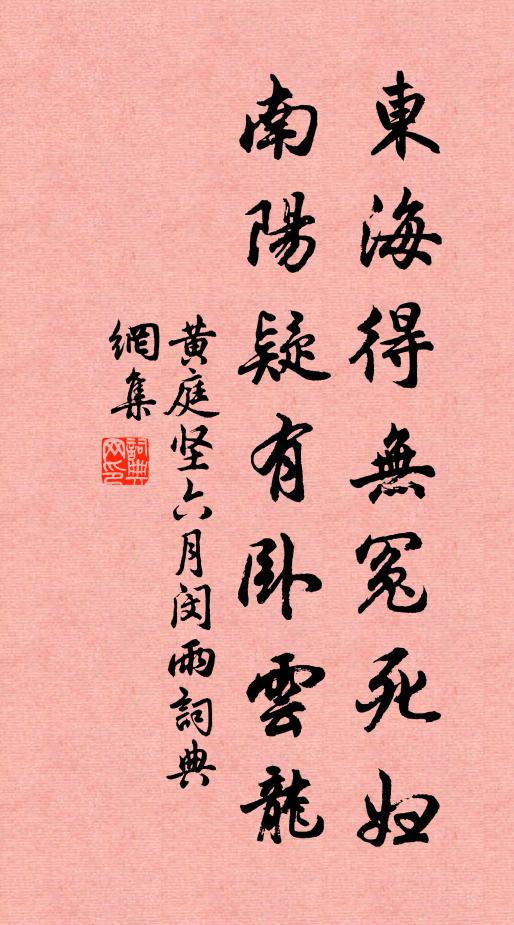 東海得無冤死婦
南陽疑有卧雲龍
黄庭坚六月闵雨詞典
網集
詞典網印